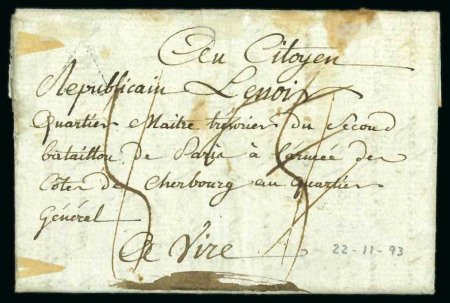 Au Citoyen
Republicain Lenoir
Quartier Maitre trésorier du Second
bataillon de Paris à l'armée des
Côtes de Cherbourg au quartier
Général
A Vire
22-11-93